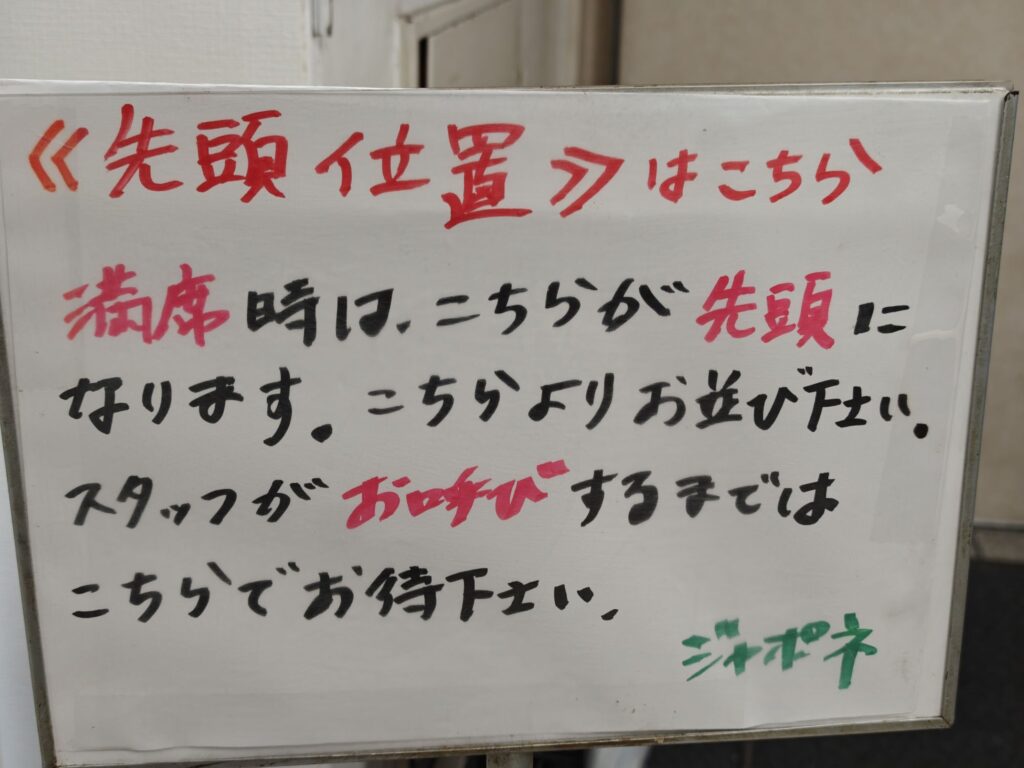 《先頭位置》はこちら
満席時は、こちらが先頭に
なります。こちらよりお並び下さい。
スタッフがお呼びするまでは
こちらでお待下さい。
ジャポネ